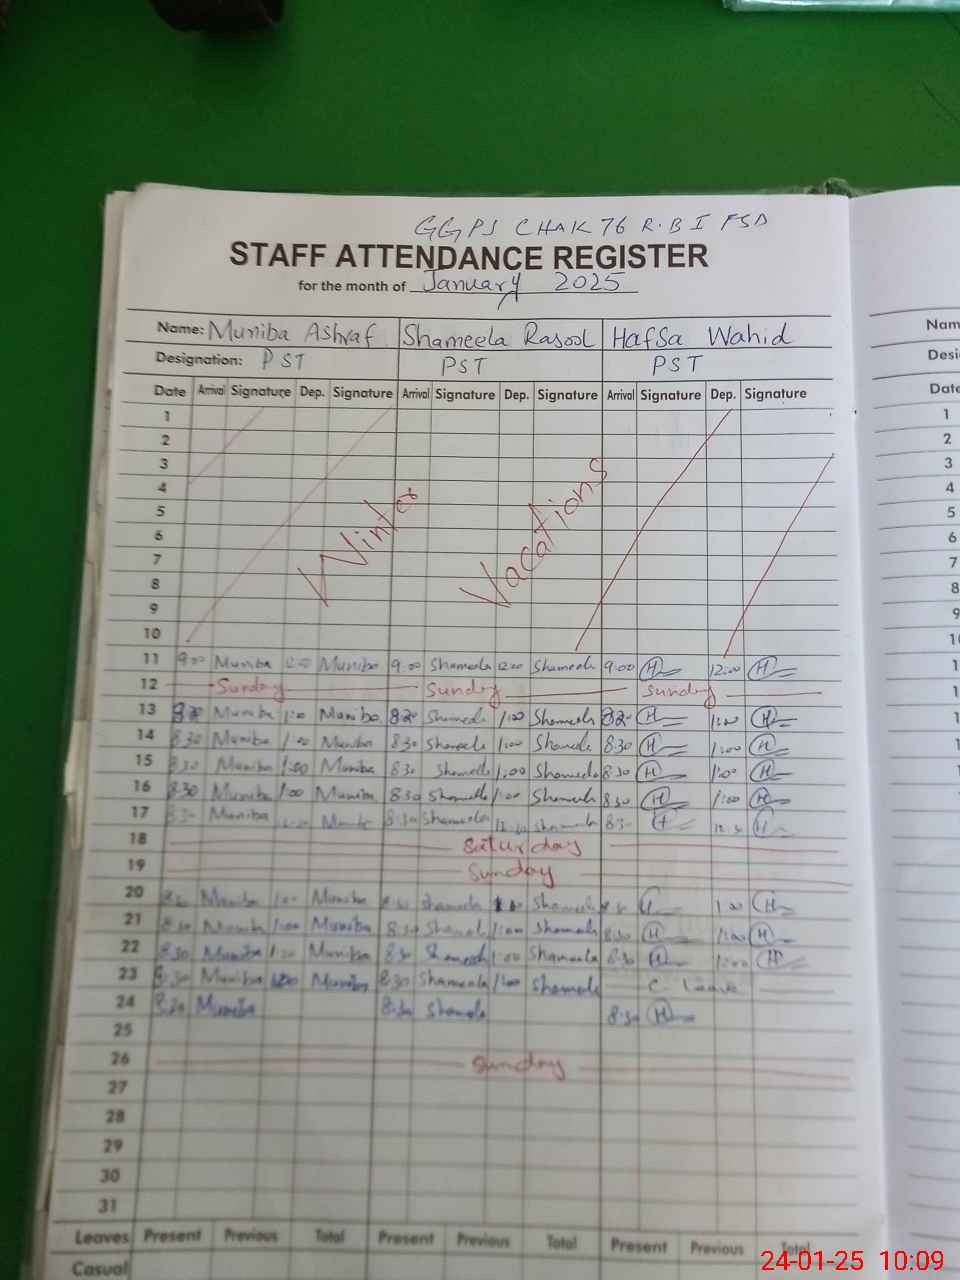 GGPS CHAK 76 R.B I FSD
STAFF ATTENDANCE REGISTER
for the month of January 2025
Name: Muniba Ashraf Shameela Rasool Hafsa Wahid
Designation: PST PST PST
Date Arrival Signature Dep. Signature Arrival Signature Dep. Signature Arrival Signature Dep. Signature
1
2
3
4
5
6
7
8
9
10
Winter Vacations
11 9:00 Muniba Muniba 9:00 Shameela 12:00 Shameela 9:00 H 12:00 H
12 Sunday Sunday Sunday
13 Muniba 1:00 Muniba Shameela 1:00 Shameela H 1:00 H
14 8:30 Muniba 1:00 Muniba 8:30 Shameela 1:00 Shameela 8:30 H 1:00 H
15 8:30 Muniba 1:00 Muniba 8:30 Shameela 1:00 Shameela 8:30 H 1:00 H
16 8:30 Muniba 1:00 Muniba 8:30 Shameela 1:00 Shameela 8:30 H 1:00 H
17 8:30 Muniba 8:30 Shameela 12:30 Shameela 8:30 H 12:30 H
18 Saturday
19 Sunday
20 8:30 Muniba 1:00 Muniba 8:30 Shameela Shameela 8:30 1:00 H
21 8:30 Muniba 1:00 Muniba 8:30 Shameela 1:00 Shameela 8:30 H 1:00 H
22 8:30 Muniba 1:00 Muniba 8:30 Shameela 1:00 Shameela 8:30 H 1:00 H
23 8:30 Muniba 1:00 Muniba 8:30 Shameela 1:00 Shameela C. Leave
24 8:30 Muniba 8:30 Shameela 8:30 H
25
26 Sunday
27
28
29
30
31
Leaves Present Previous Total Present Previous Total Present Previous Total
Casual
24-01-25 10:09